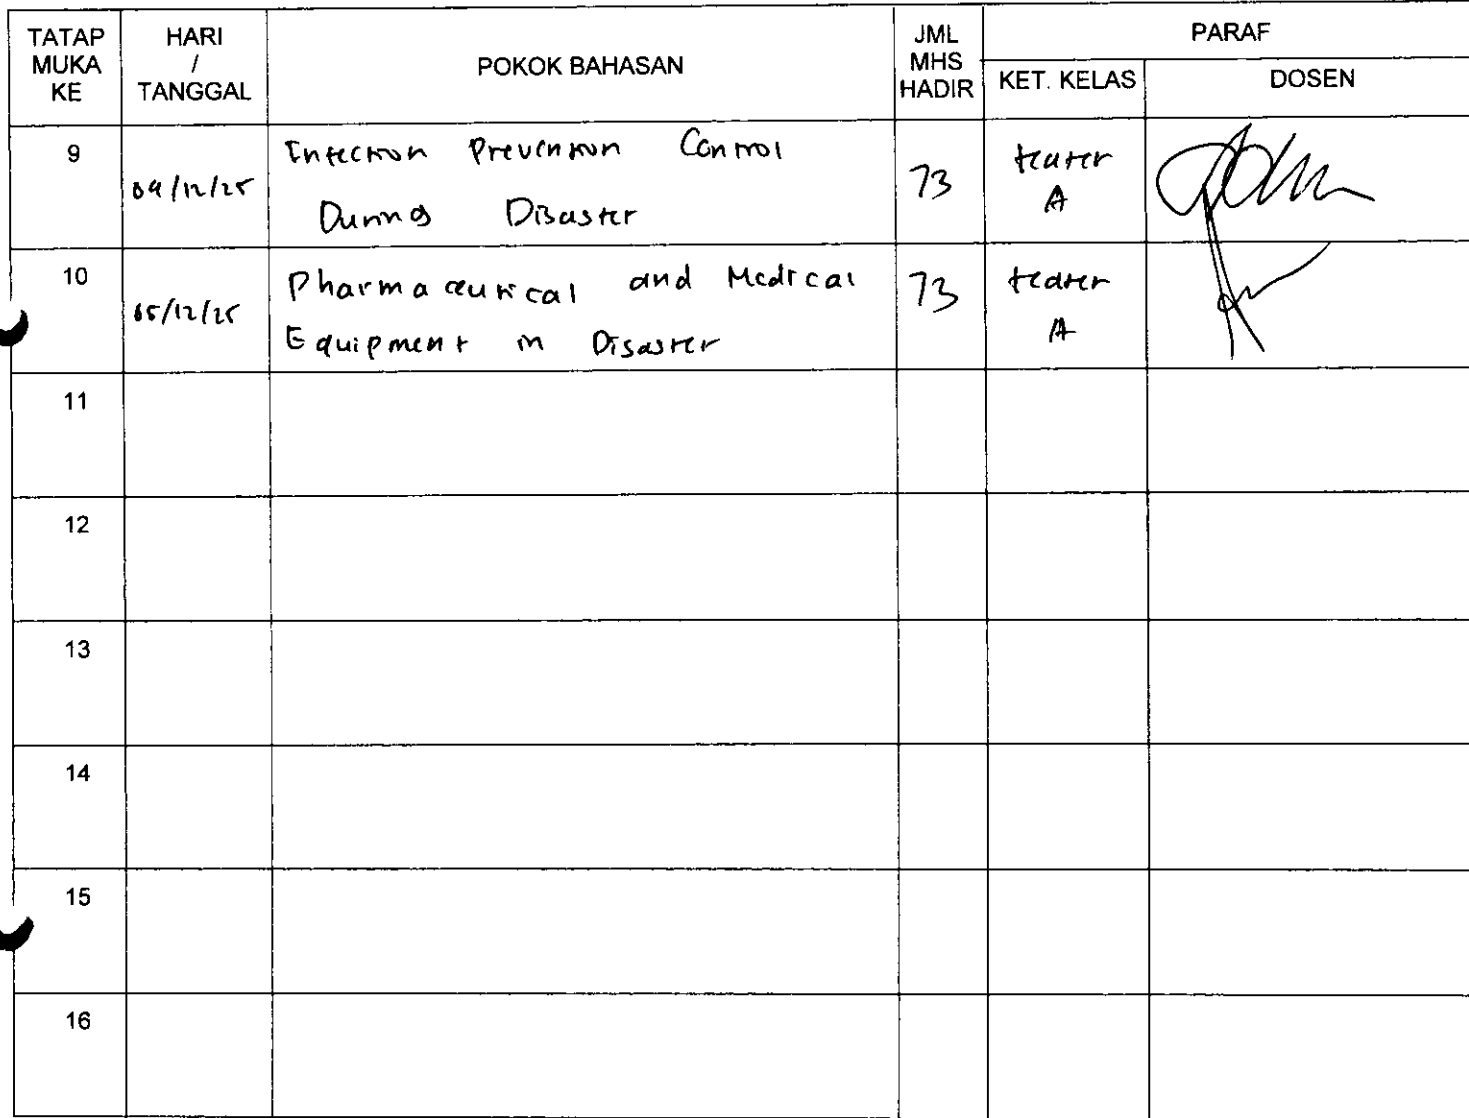 TATAP MUKA KE HARI / TANGGAL POKOK BAHASAN JML MHS HADIR PARAF
KET. KELAS DOSEN
9 04/12/25 Infection Prevention Control During Disaster 73 teater A
10 05/12/25 Pharmaceutical and Medical Equipment in Disaster 73 teater A
11
12
13
14
15
16